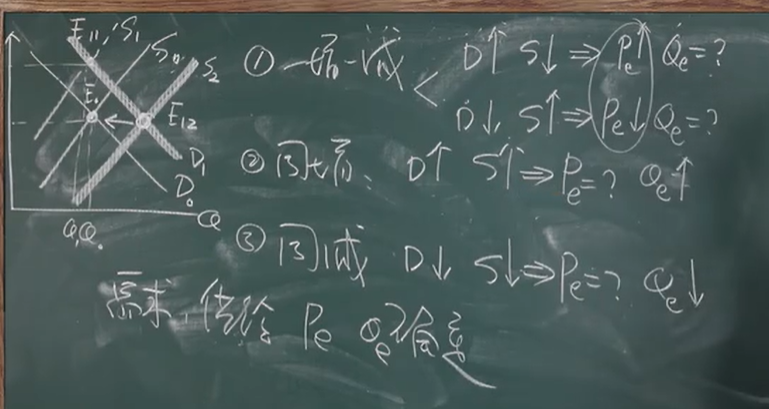 E₁₁ S₁ S₀ S₂
E₀ E₁₂
D₁
D₀
Q₁Q₀ Q
① 一增一减 < D↑ S↓ ⇒ Pe↑ Qe=?
D↓ S↑ ⇒ Pe↓ Qe=?
② 同增 D↑ S↑ ⇒ Pe=? Qe↑
③ 同减 D↓ S↓ ⇒ Pe=? Qe↓
需求, 供给 Pe Qe